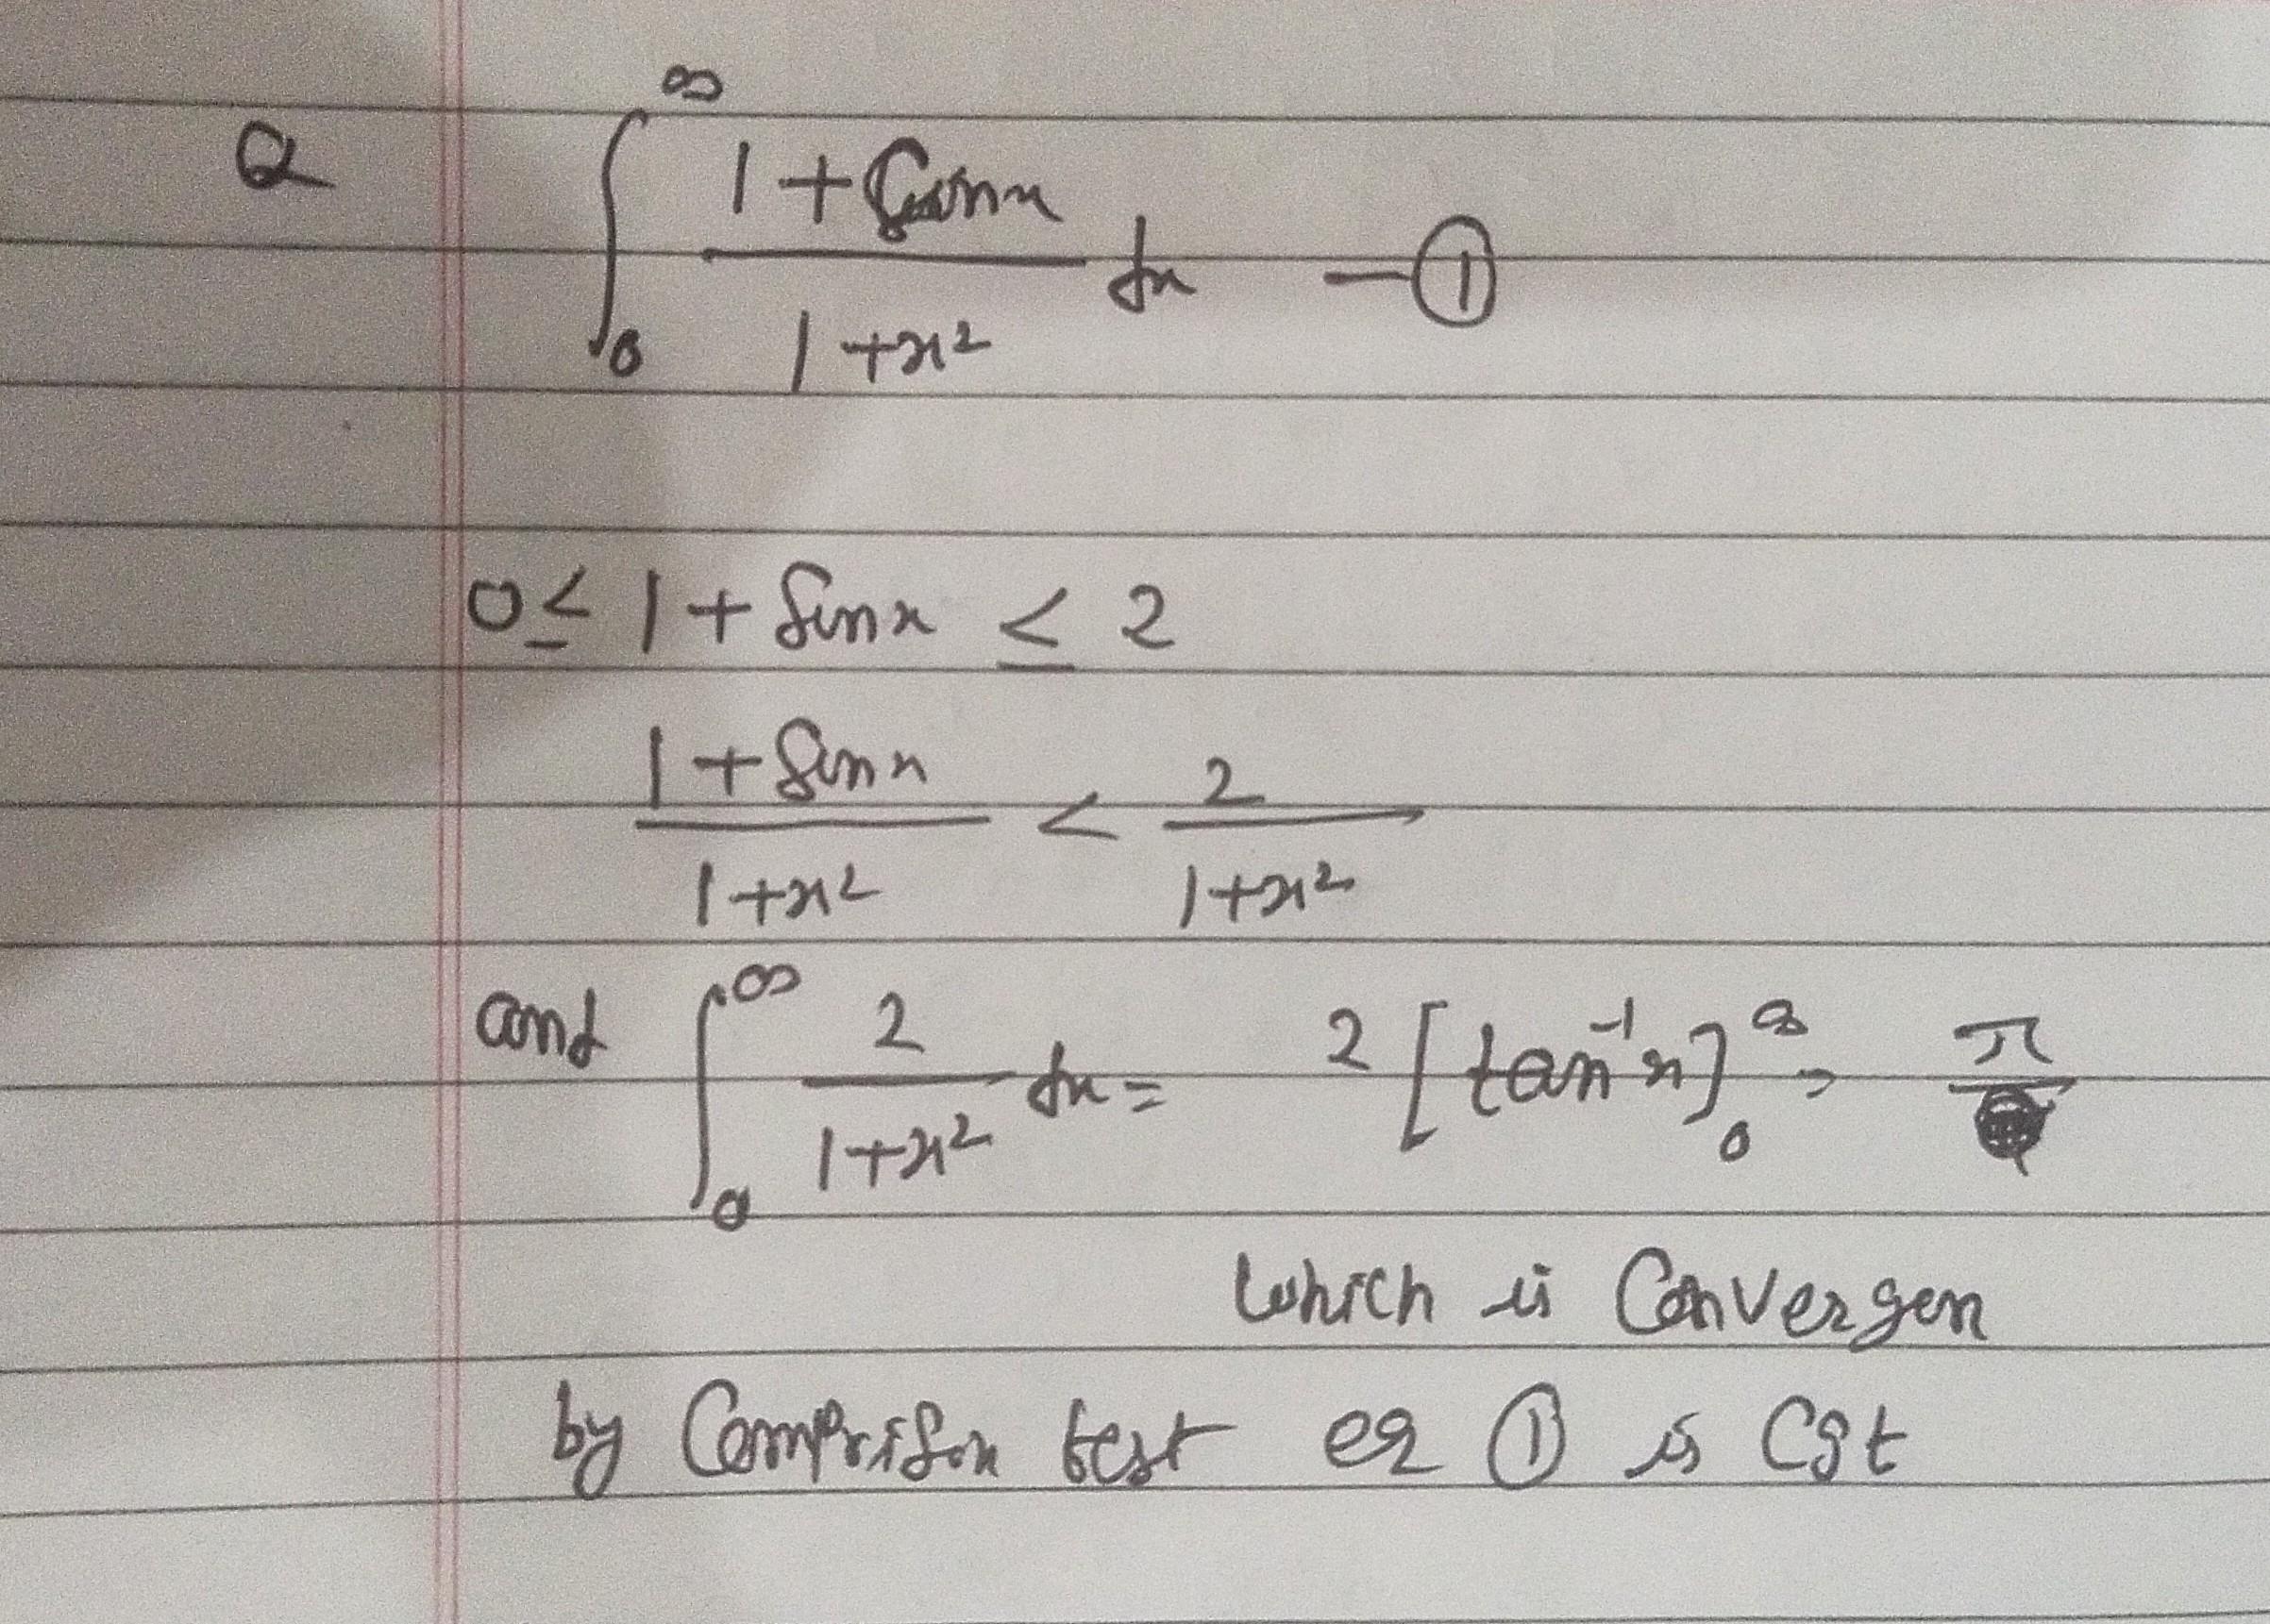 Q ∫₀^∞ (1 + sinx)/(1 + x²) dx — ①
0 ≤ 1 + Sinx ≤ 2
(1 + Sinx)/(1 + x²) < 2/(1 + x²)
and ∫₀^∞ 2/(1 + x²) dx = 2 [tan⁻¹x]₀^∞ = π
which is Convergen
by Comprison test eq ① is Cgt